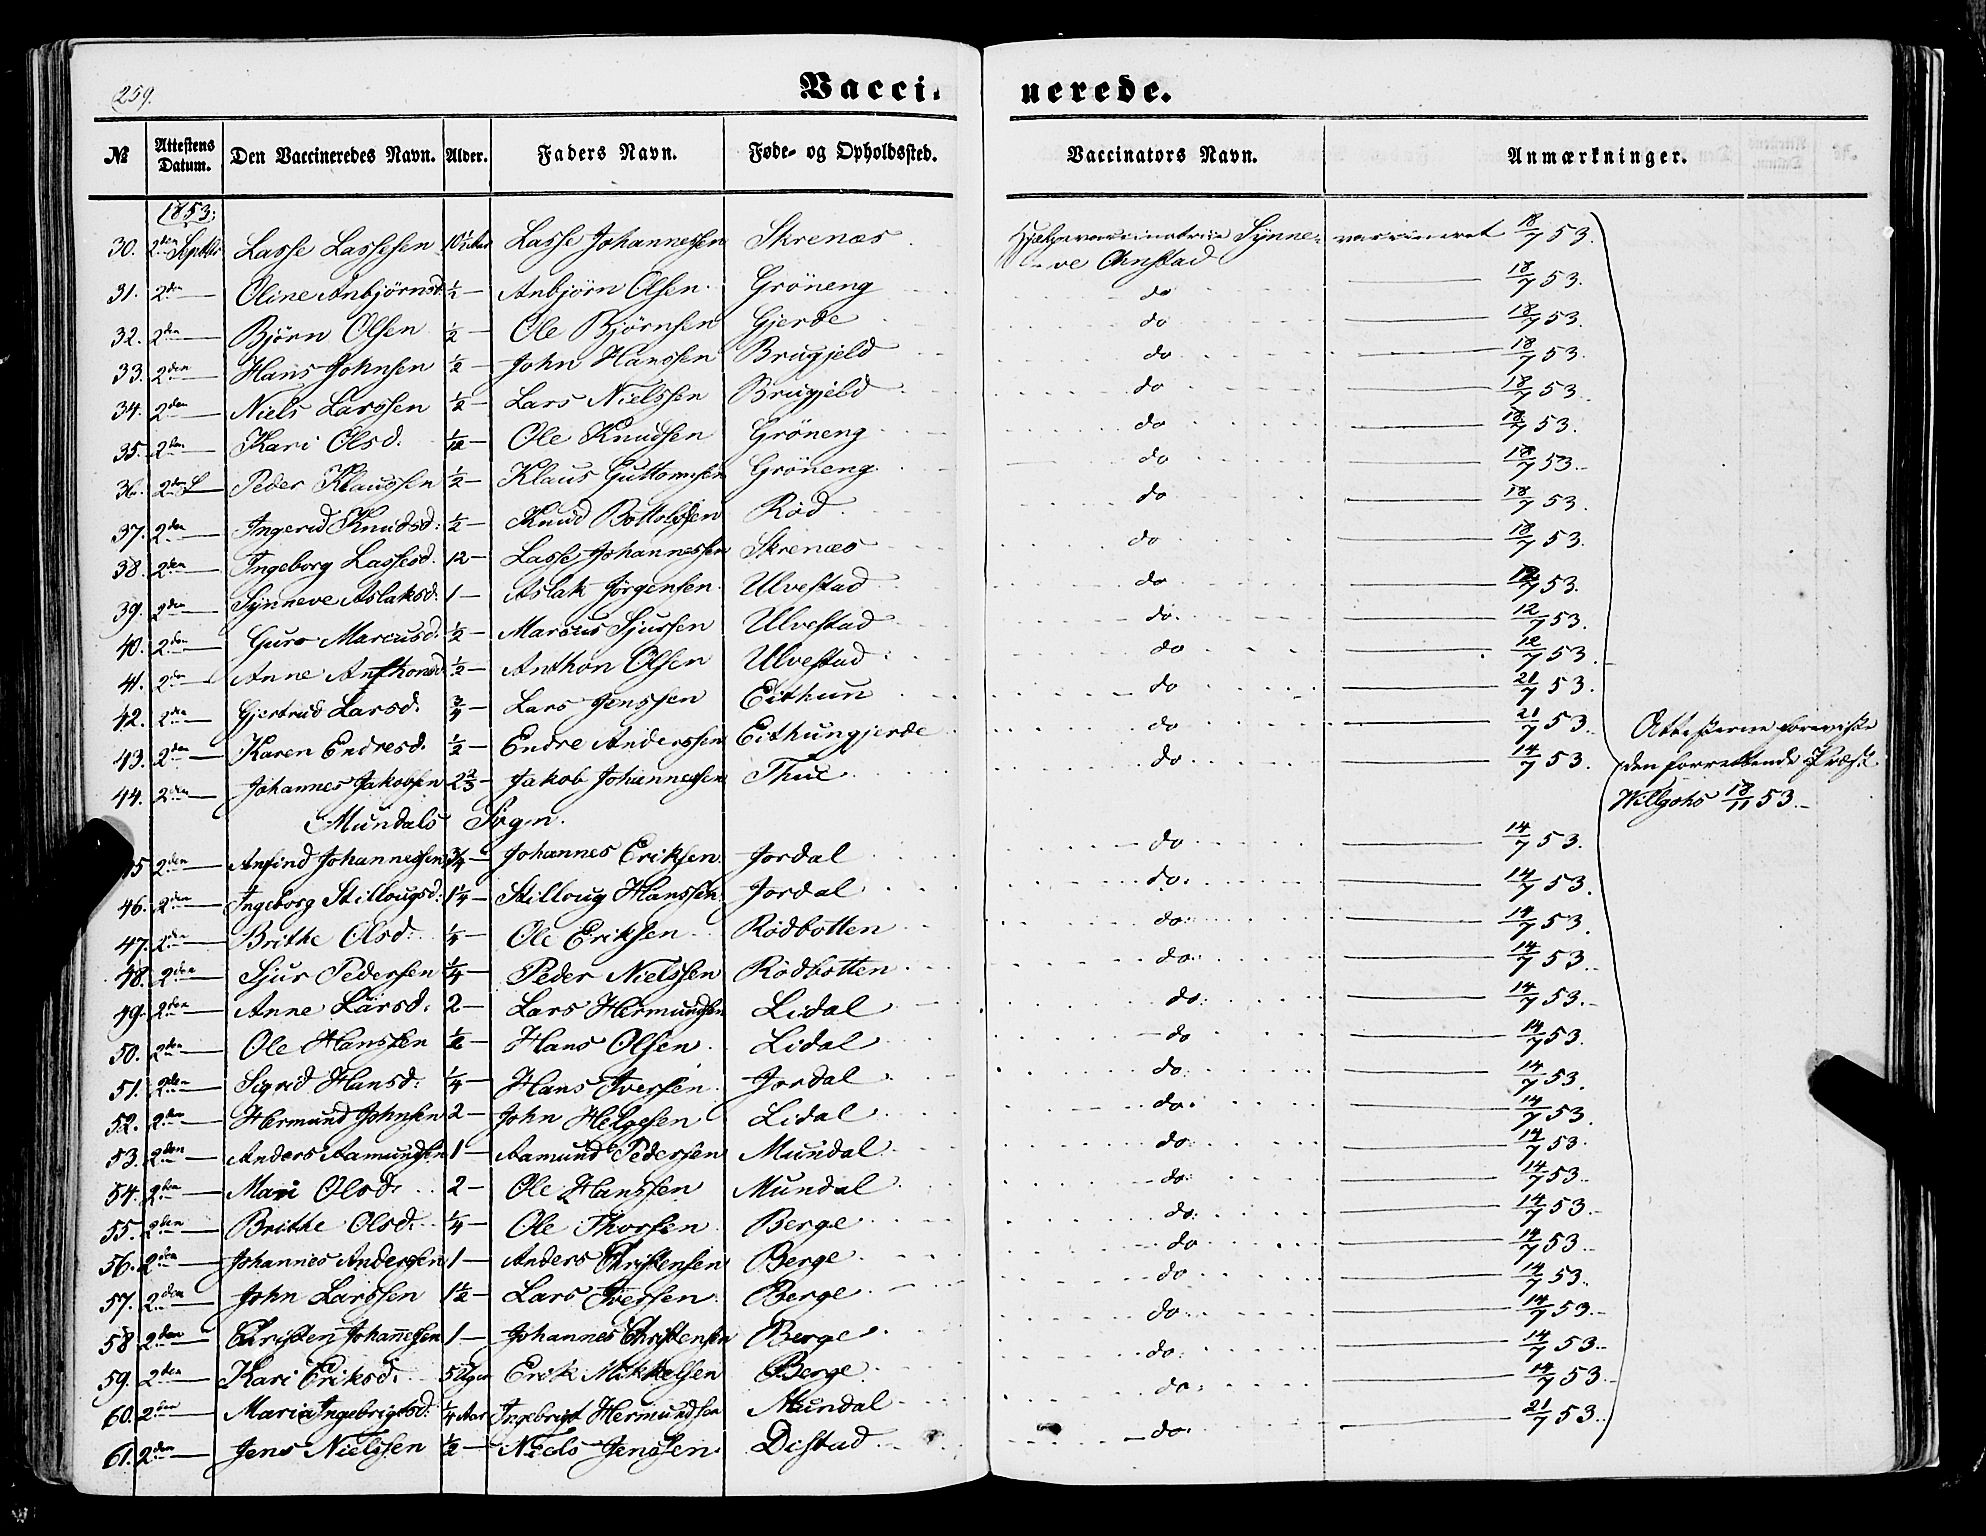 259.
Vaccinerede.
№ Attestens Datum. Den Vaccineredes Navn. Alder. Faders Navn. Føde- og Opholdssted. Vaccinators Navn. Anmærkninger.
1853:
30. 2den Septbr Lasse Lassesen 10½ Aar Lasse Johannesen Skrenæs Hjelpevaccinatrice Synneve Arnstad vaccineret 18/7 53.
31. 2den — Oline Anbjørnsd. ½ — Anbjørn Olsen Gröneng do — 18/7 53.
32. 2den — Bjørn Olsen ½ — Ole Bjørnsen Gjerde do — 18/7 53.
33. 2den — Hans Johnsen ½ — John Hanssen Brugjeld do — 18/7 53.
34. 2den — Niels Larssen ½ — Lars Nielssen Brugjeld do — 18/7 53.
35. 2den — Kari Olsd. 1/12 — Ole Knudsen Gröneng do — 18/7 53.
36. 2den — Peder Klaussen ½ — Klaus Guttormsen Gröneng do — 18/7 53.
37. 2den — Ingerid Knudsd. ½ — Knud Bottolfsen Röd do — 18/7 53.
38. 2den — Ingeborg Lassesd. 12 — Lasse Johannessen Skrenæs do — 18/7 53.
39. 2den — Synneve Aslaksd. 1 — Aslak Jørgensen Ulvestad do — 12/7 53.
40. 2den — Guro Marcusd. ½ — Marcus Sjursen Ulvestad do. — 12/7 53.
41. 2den — Anne Anthonsd. ½ — Anthon Olsen Ulvestad do — 12/7 53.
42. 2den — Gjertrud Larsd. ¾ — Lars Jenssen Eithun do — 21/7 53.
43. 2den — Karen Endresd. ½ — Endre Anderssen Eithungjerde do — 21/7 53.
44. 2den — Johannes Jakobsen 2⅔ — Jakob Johannesen Thue do — 14/7 53.
Attesterne foreviste den forrettende Præst Willgohs 18/11 53.
Mundals Sogn.
45 2den — Anfind Johannessen ¾ — Johannes Eriksen Jordal do — 14/7 53.
46. 2den — Ingeborg Stillougsd. 1¼ — Stilloug Hanssen Jordal do. — 14/7 53.
47. 2den — Brithe Olsd. ¼ — Ole Eriksen Rödbotten do. — 14/7 53.
48. 2den — Sjur Pedersen ¼ — Peder Nielssen Rödbotten do. — 14/7 53.
49. 2den — Anne Larsd. 2 — Lars Hermundsen Lidal do. — 14/7 53.
50. 2den — Ole Hanssen ½ — Hans Olsen Lidal do — 14/7 53.
51. 2den — Sigrid Hansd. ¼ — Hans Iversen Jordal do. — 14/7 53.
52. 2den — Hermund Johnsen 2 — John Helgesen Lidal do. — 14/7 53.
53. 2den — Anders Aamundsen 1 — Aamund Pedersen Mundal do. — 14/7 53.
54. 2den — Mari Olsd. 2 — Ole Hanssen Mundal do. — 14/7 53.
55. 2den — Brithe Olsd. ¼ — Ole Thorsen Berge do. — 14/7 53.
56. 2den — Johannes Andersen 1 — Anders Christensen Berge do — 14/7 53.
57. 2den — John Larssen 1½ — Lars Iversen Berge do — 14/7 53.
58 2den — Christen Johannesen 1 — Johannes Christensen Berge do. — 14/7 53.
59. 2den — Kari Eriksd. 5 Uger Erik Mikkelsen Berge do. — 14/7 53.
60. 2den — Maria Ingebrigtsd. ¼ Aar Ingebrigt Hermundsen Mundal do. — 14/7 53.
61. 2den — Jens Nielssen ½ — Niels Jenssen Distad do. — 21/7 53.